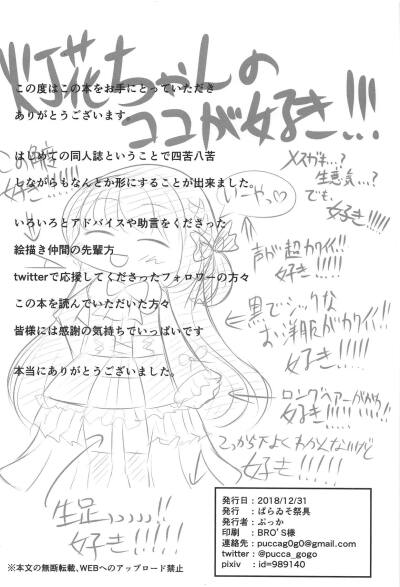 灯花ちゃんの
ココが好き!!!
この度はこの本をお手にとっていただき
ありがとうございます。
はじめての同人誌ということで四苦八苦
しながらもなんとか形にすることが出来ました。
いろいろとアドバイスや助言をくださった
絵描き仲間の先輩方
twitterで応援してくださったフォロワーの方々
この本を読んでいただいた方々
皆様には感謝の気持ちでいっぱいです
本当にありがとうございました。
好き!!!
メスガキ…?
生意気…?
でも、
好き!!!!
声が超カワイイ!!
好き!!!!
黒でシックな
お洋服がカワイイ!!
好き!!!!!
ロングヘアーがかわ
好き!!!!! !!!?!
ここから下よくわかんないけど
好き!!!!!
生足
好き!!!!
発行日：2018/12/31
発行：ばらゐそ祭具
発行者：ぷっか
印刷：BRO'S様
連絡先：puccag0g0@gmail.com
twitter：@pucca_gogo
pixiv：id=989140
※本文の無断転載、WEBへのアップロード禁止